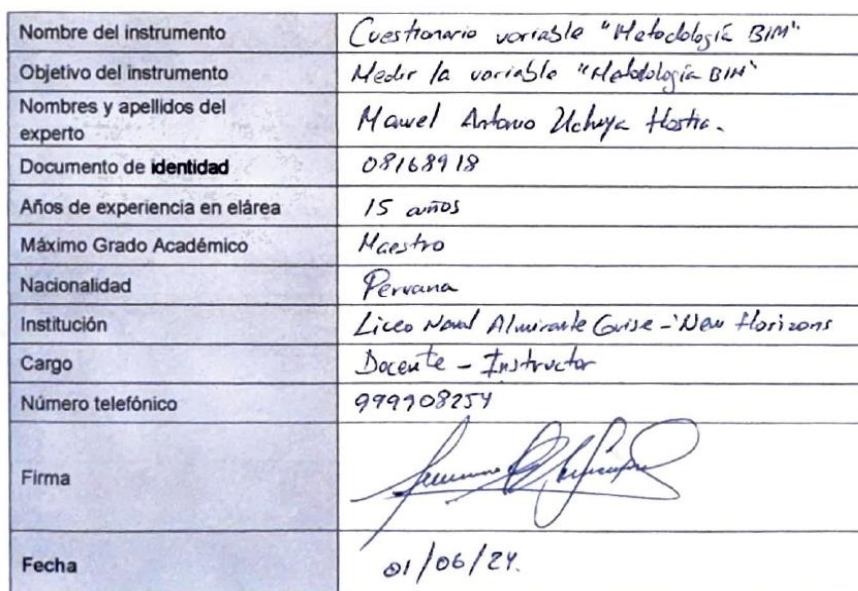 Nombre del instrumento Cuestionario variable "Metodología BIM"
Objetivo del instrumento Medir la variable "Metodología BIM"
Nombres y apellidos del
experto Antonio
Documento de identidad 08168918
Años de experiencia en elárea 15 años
Máximo Grado Académico Maestro
Nacionalidad Peruana
Institución Liceo Naval Almirante Guise - New Horizons
Cargo Docente - Instructor
Número telefónico 999908254
Firma
Fecha 01/06/24.